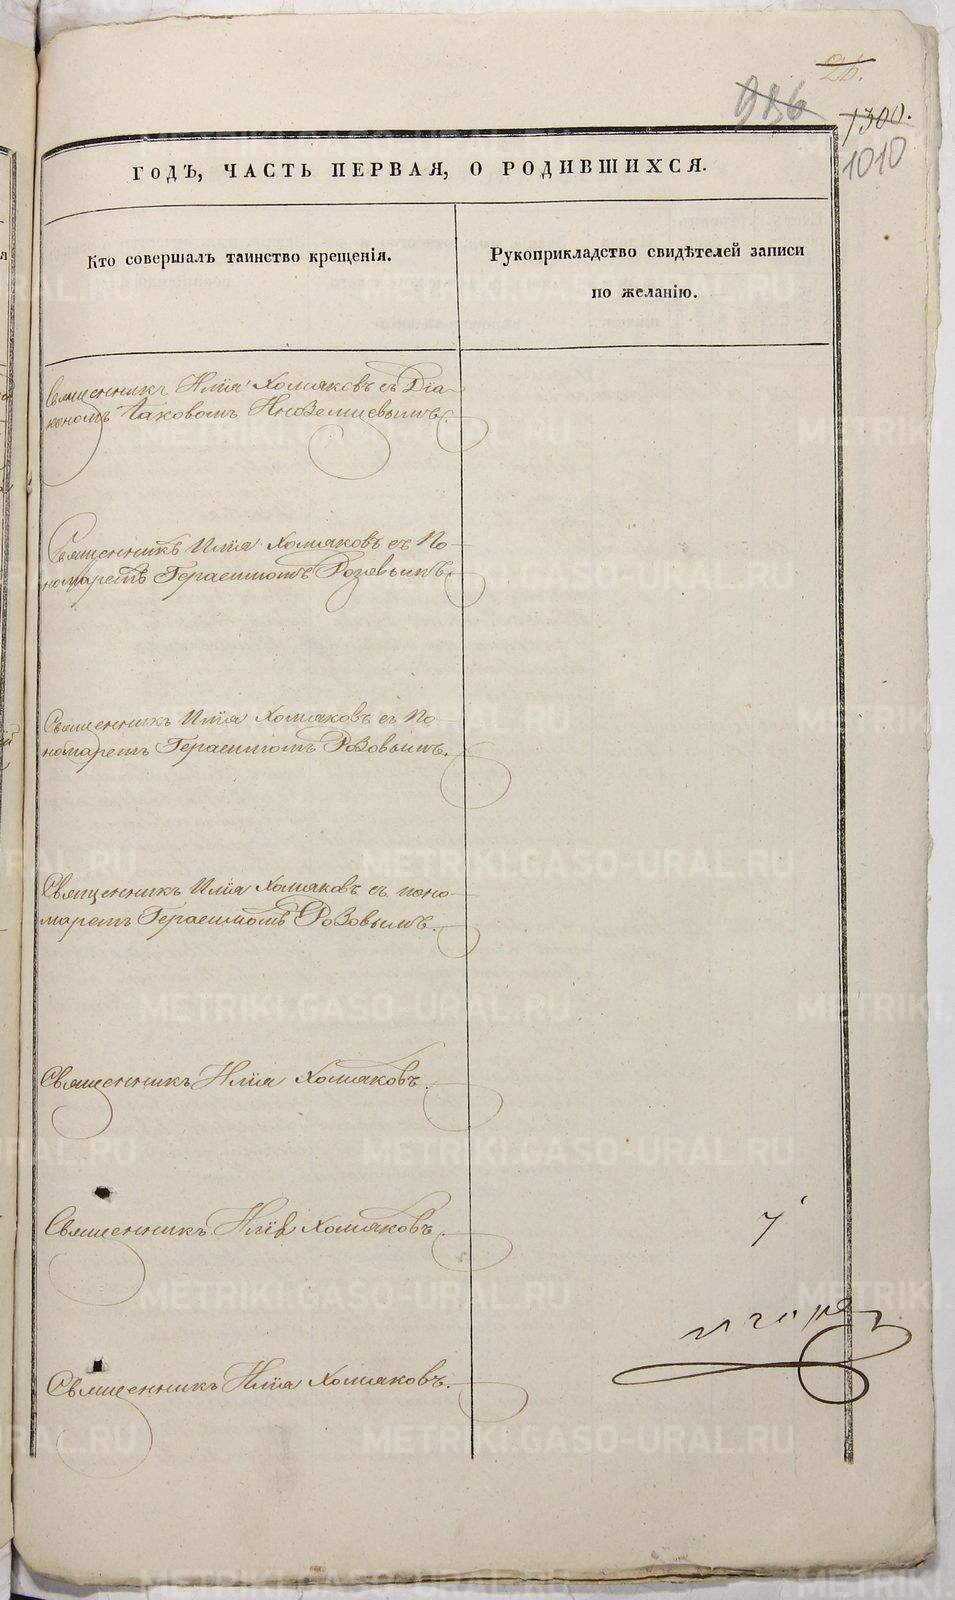 26.
936
1300.
1010
ГОДЪ, ЧАСТЬ ПЕРВАЯ, О РОДИВШИХСЯ.
Кто совершалъ таинство крещенія.
Рукоприкладство свидѣтелей записи
по желанію.
Священникъ Илїа Хомяковъ съ Діа-
кономъ Іаковомъ Иноземцевымъ.
Священникъ Илїа Хомяковъ съ По-
номаремъ Герасимомъ Розовымъ.
Священникъ Илїа Хомяковъ съ По-
номаремъ Герасимомъ Розовымъ.
Священникъ Илїа Хомяковъ съ поно-
маремъ Герасимомъ Розовымъ.
Священникъ Илїа Хомяковъ.
Священникъ Илїа Хомяковъ.
Священникъ Илїа Хомяковъ.
METRIKI.GASO-URAL.RU